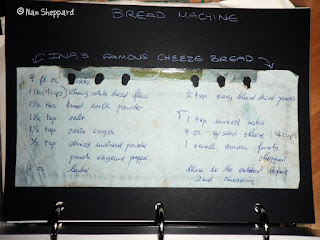 @ Nan Sheppard
BREAD MACHINE
INA'S FAMOUS CHEEZE BREAD
9 fl oz water
1 lb (4 cups) strong white bread flour
1½ tbs dried milk powder
1½ tsp salt
1½ tsp caster sugar
½ tsp dried mustard powder
pinch cayenne pepper
2 oz butter
2 tsp easy blend dried yeast
1 tsp mixed herbs
4 oz grated cheese
1 small onion finely
chopped
Allow to be added before
2nd kneading